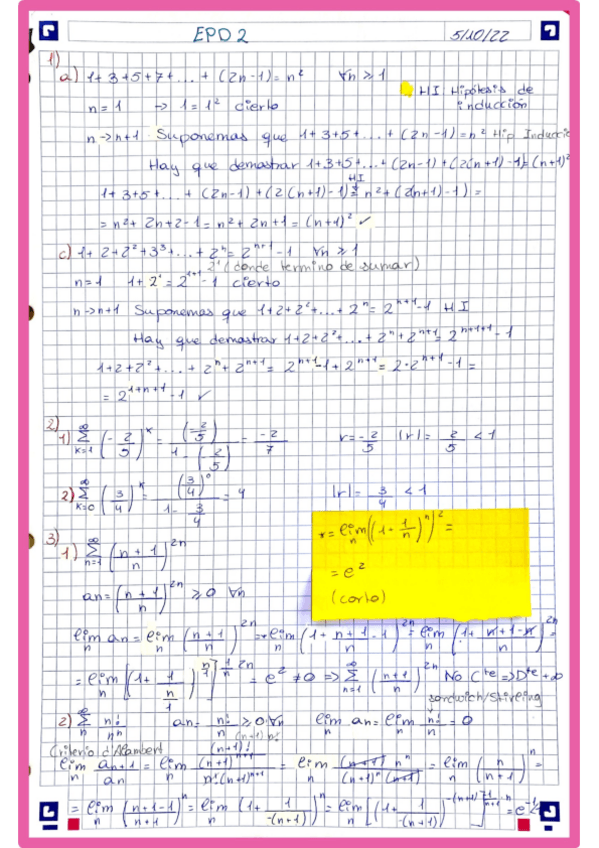 EPD 2
5/10/22
1)
a) 1+3+5+7+...+(2n-1)=n² ∀n≥1
HI Hipótesis de
inducción
n=1 → 1=1² cierto
n→n+1 Suponemos que 1+3+5+...+(2n-1)=n² Hip Inducció
Hay que demostrar 1+3+5+...+(2n-1)+(2(n+1)-1)=(n+1)²
HI
1+3+5+...+(2n-1)+(2(n+1)-1)=n²+(2(n+1)-1)=
=n²+2n+2-1=n²+2n+1=(n+1)² ✓
c) 1+2+2²+3³+...+2ⁿ=2ⁿ⁺¹-1 ∀n≥1
2¹ (donde termino de sumar)
n=1 1+2¹=2¹⁺¹-1 cierto
n→n+1 Suponemos que 1+2+2²+...+2ⁿ=2ⁿ⁺¹-1 HI
Hay que demostrar 1+2+2²+...+2ⁿ+2ⁿ⁺¹=2ⁿ⁺¹⁺¹-1
1+2+2²+...+2ⁿ+2ⁿ⁺¹=2ⁿ⁺¹-1+2ⁿ⁺¹=2·2ⁿ⁺¹-1=
=2¹⁺ⁿ⁺¹-1 ✓
2)
1) ∑_{k=1}^∞ (-2/5)^k = (-2/5)/(1-(-2/5)) = -2/7 r=-2/5 |r|=2/5<1
2) ∑_{k=0}^∞ (3/4)^k = (3/4)⁰/(1-3/4) = 4 |r|=3/4<1
*=lim_n ((1+1/n)ⁿ)²=
=e²
(corto)
3)
1) ∑_{n=1}^∞ ((n+1)/n)^{2n}
an=((n+1)/n)^{2n} ≥0 ∀n
lim_n an=lim_n ((n+1)/n)^{2n}=*lim_n (1+(n+1)/n-1)^{2n}=lim_n (1+(n+1-n)/n)^{2n}=
=lim_n [(1+1/(n/1))^{n/1}]^{1/n·2n}=e²≠0 ⇒ ∑_{n=1}^∞ ((n+1)/n)^{2n} No Cte ⇒ Dte +∞
sandwich/Stirling
2) ∑_n^∞ n!/nⁿ an=n!/nⁿ ≥0 ∀n lim_n an=lim_n n!/nⁿ=0
Criterio d'Alambert
lim_n an+1/an=lim_n ((n+1)!/(n+1)ⁿ⁺¹)/(n!/nⁿ) (n+1)n! =lim_n (n+1)nⁿ/((n+1)ⁿ(n+1))=lim_n (n/(n+1))ⁿ=
=lim_n ((n+1-1)/(n+1))ⁿ=lim_n (1+1/(-(n+1)))ⁿ=lim_n [(1+1/(-(n+1)))^{-(n+1)}]^{-1/(n+1)·n}=e⁻¹